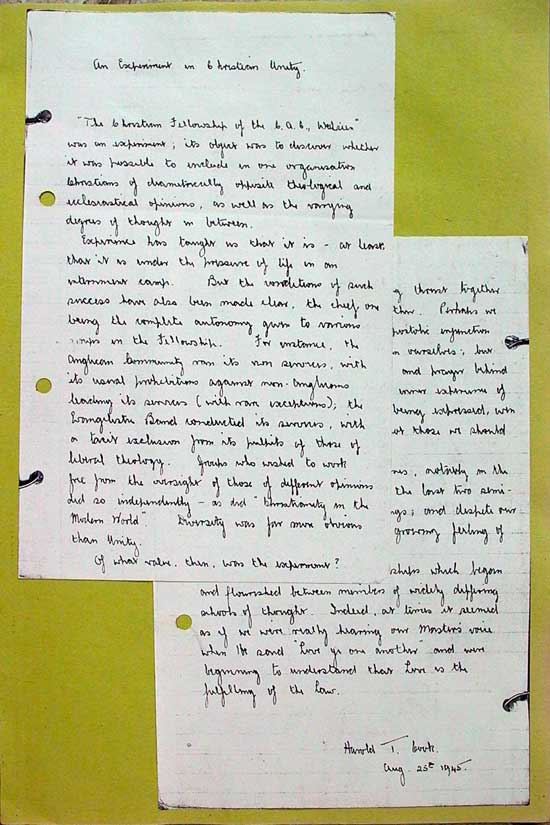 An Experiment in Christian Unity.
"The Christian Fellowship of the C.A.C., Weihsien"
was an experiment; its object was to discover whether
it was possible to include in one organisation
Christians of diametrically opposite theological and
ecclesiastical opinions, as well as the varying
degrees of thought in between.
Experience has taught us that it is - at least
that it is under the pressure of life in an
internment camp. But the conditions of such
success have also been made clear, the chief one
being the complete autonomy given to various
groups in the Fellowship. For instance, the
Anglican Community ran its own services, with
its usual prohibitions against non-Anglicans
leading its services (with rare exceptions); the
Evangelistic Band conducted its services, with
a tacit exclusion from its pulpits of those of
liberal theology. Groups who wished to work
free from the oversight of those of different opinions
did so independently - as did "Christianity in the
Modern World". Diversity was far more obvious
than Unity.
Of what value, then, was the experiment?
thrust together
Perhaps we
apostolic injunction
ourselves; but
and prayer behind
inner experience of
being expressed, won
those we should
notably in the
the last two
and despite our
growing feeling of
which began
and flourished between members of widely differing
schools of thought. Indeed, at times it seemed
as if we were really hearing our Master's voice
when He said "Love ye one another" and were
beginning to understand that Love is the
fulfilling of the law.
Harold T. Cook.
Aug. 25th 1945.